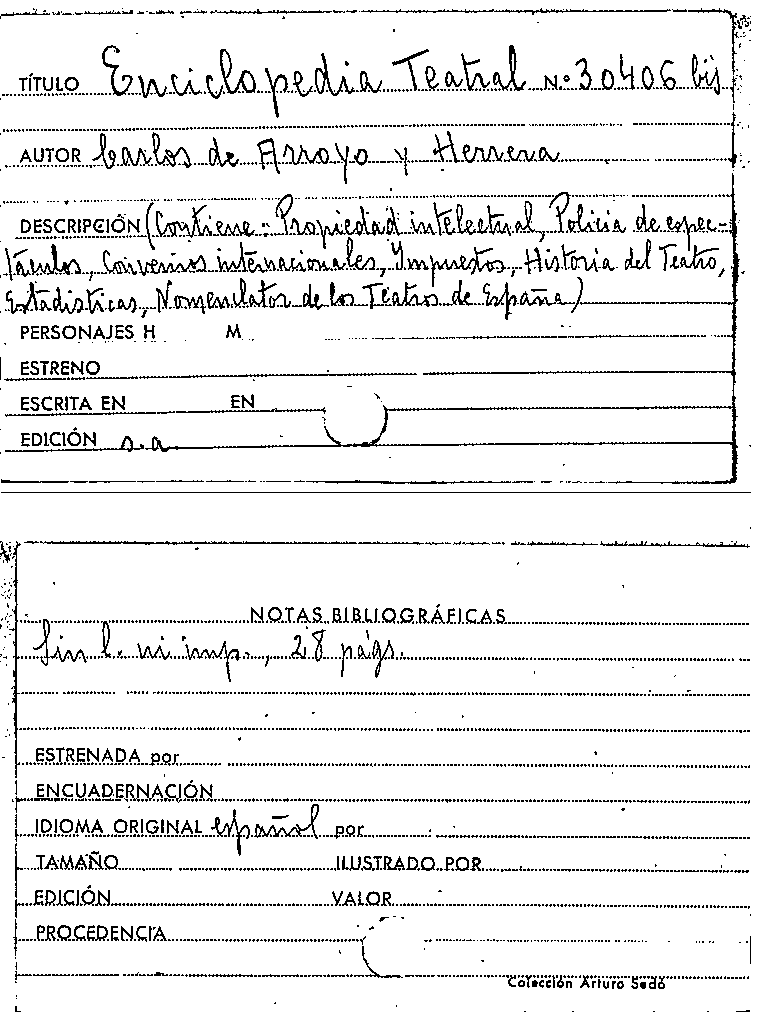 TÍTULO Enciclopedia Teatral N.º 30406 bis
AUTOR Carlos de Arroyo y Herrera
DESCRIPCIÓN (Contiene: Propiedad intelectual, Policia de espec-
táculos, Convenios internacionales, Impuestos, Historia del Teatro,
Estadisticas, Nomenclator de los Teatros de España)
PERSONAJES H M
ESTRENO
ESCRITA EN EN
EDICIÓN s.a.
NOTAS BIBLIOGRÁFICAS
Sin l. ni imp., 28 págs.
ESTRENADA por
ENCUADERNACIÓN
IDIOMA ORIGINAL español por
TAMAÑO ILUSTRADO POR
EDICIÓN VALOR
PROCEDENCIA
Colección Arturo Sedó